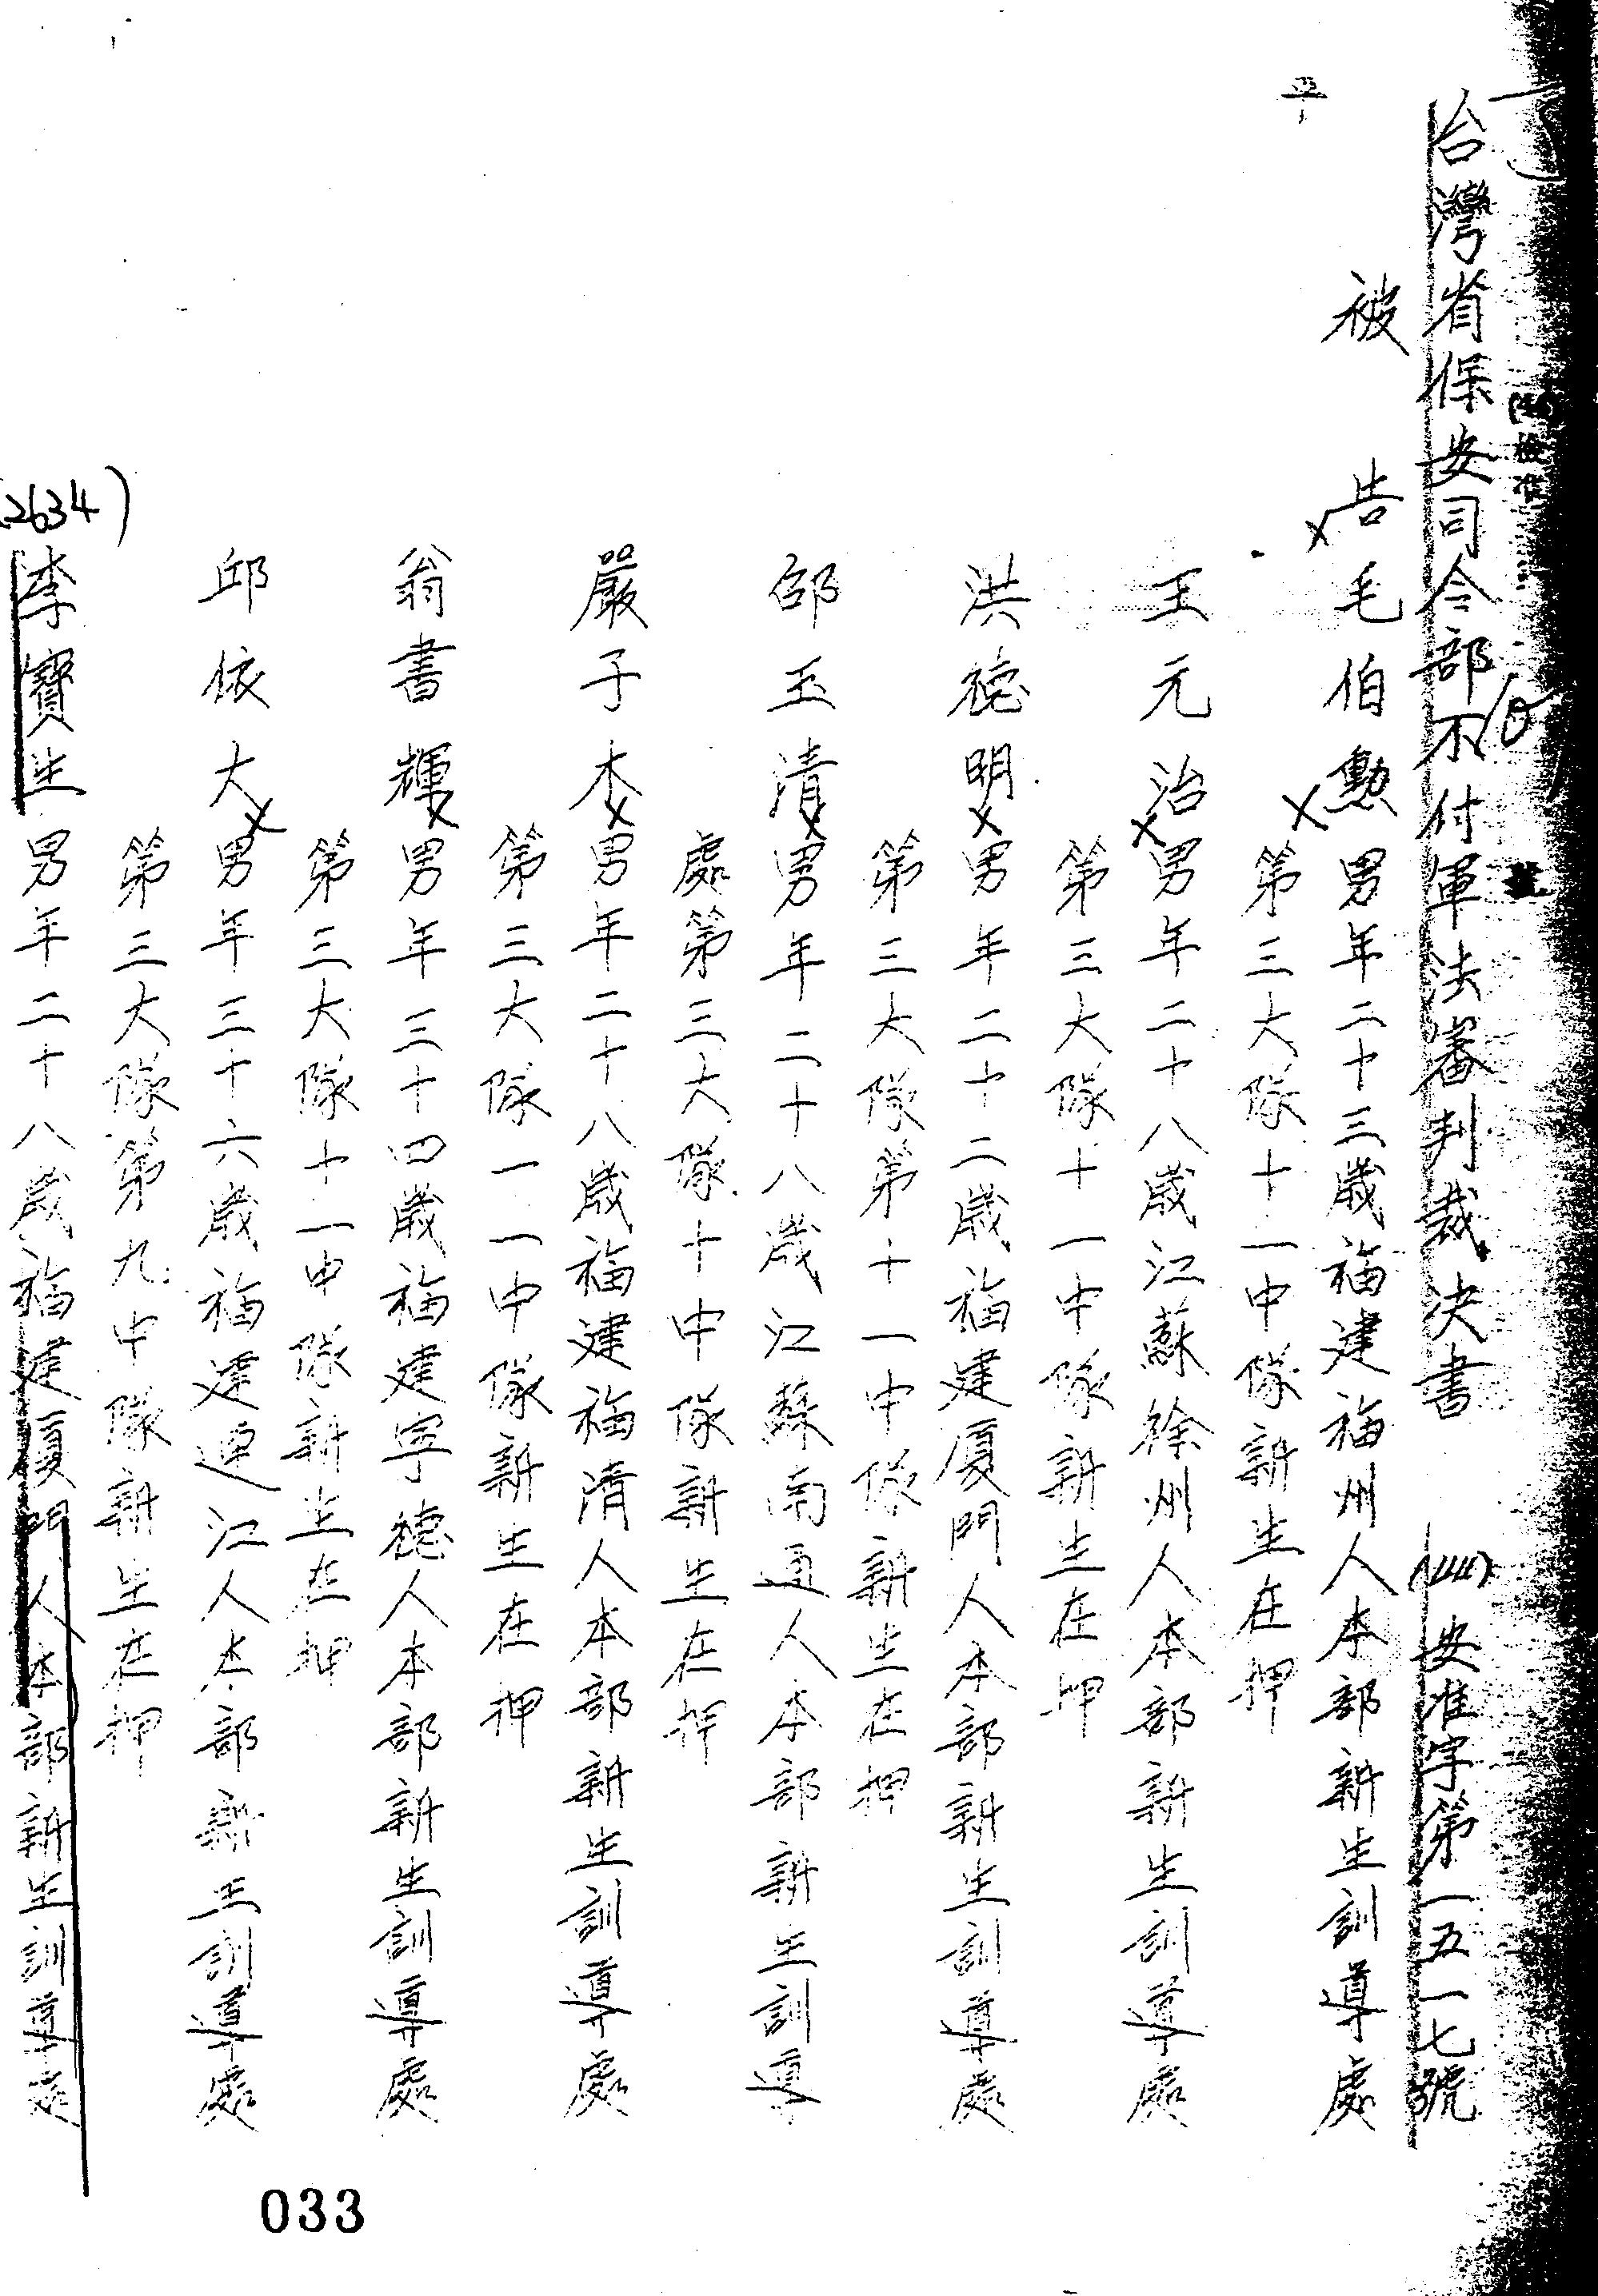 台灣省保安司令部不付軍法審判裁決書 (44)安准字第一五一七號
被告毛伯勳 男年二十三歲福建福州人本部新生訓導處
第三大隊十一中隊新生在押
王元治 男年二十八歲江蘇徐州人本部新生訓導處
第三大隊十一中隊新生在押
洪德明 男年二十二歲福建廈門人本部新生訓導處
第三大隊第十一中隊新生在押
邵玉清 男年二十八歲江蘇南通人本部新生訓導
處第三大隊十中隊新生在押
嚴子木 男年二十八歲福建福清人本部新生訓導處
第三大隊一一中隊新生在押
翁書輝 男年三十四歲福建寧德人本部新生訓導處
第三大隊十一中隊新生在押
邱依大 男年三十六歲福建連江人本部新生訓導處
第三大隊第九中隊新生在押
(2634)
李寶生 男年二十八歲福建廈門人本部新生訓導處
033